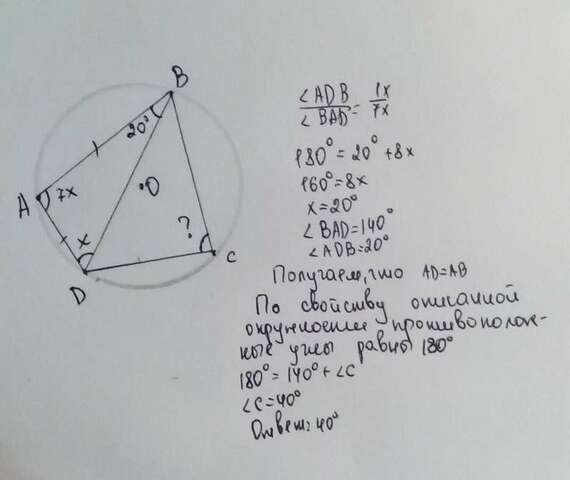 B
20°
A
7x
O
x
?
C
D
∠ADB / ∠BAD = 1x / 7x
180° = 20° + 8x
160° = 8x
x = 20°
∠BAD = 140°
∠ADB = 20°
Получаем, что AD = AB
По свойству описанной
окружности противополож-
ные углы равны 180°
180° = 140° + ∠C
∠C = 40°
Ответ: 40°